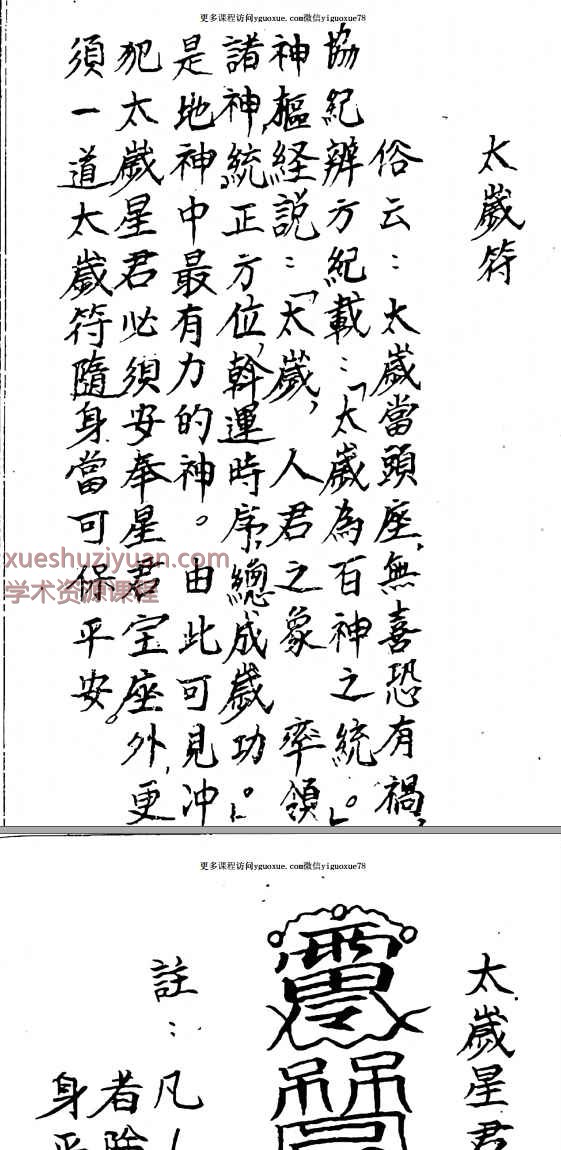 更多课程访问yguoxue.com微信yiguoxue78
太歲符
俗云：太歲當頭座，無喜恐有禍，
協紀辨方紀載：「太歲為百神之統。」
神樞経説：「太歲，人君之象 率領
諸神，統正方位，斡運時序，總成歲功。」
是地神中最有力的神。由此可見冲
犯太歲星君必須安奉星君宝座外，更
須一道太歲符隨身當可保平安。
xueshuziyuan.com
学术资源课程
更多课程访问yguoxue.com微信yiguoxue78
太歲星君
註：凡
者除
身平